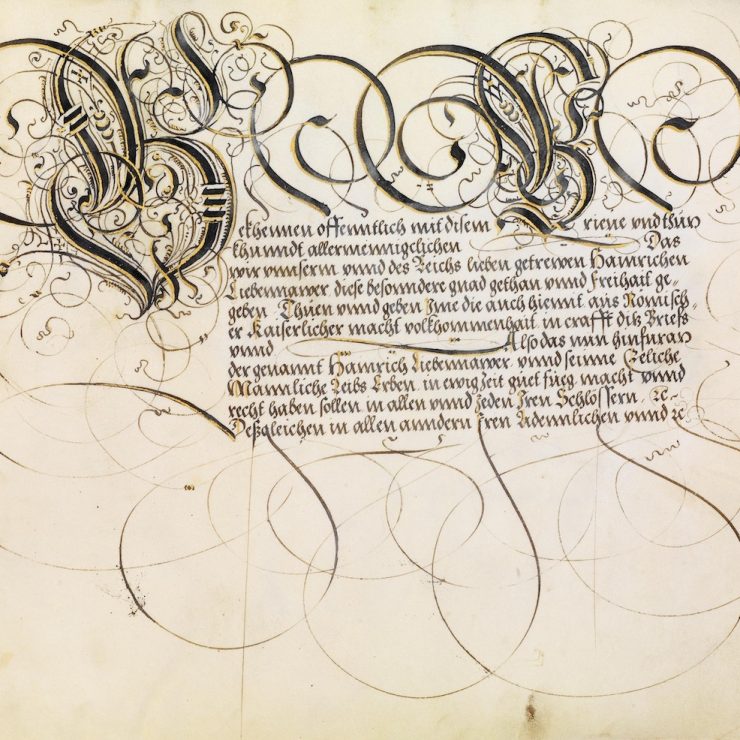 Bekhennen offenntlich mit disem Briene vnd thun
khunndt allermennigclichen Das
wir vnnserm vnnd des Reichs lieben getrewen Hainrichen
Liebennawer, diese besondere gnad gethan vnnd Freihait ge-
geben. Thuen vnnd geben Ime die auch hiemit aus Romisch-
er Kaiserlicher macht volkhommenhait in crafft ditz Briefs
vnnd Also das nun hinfuran
der genannt Hainrich Liebennawer, vnnd seinne Eeliche,
Mannliche Leibs Erben, in ewig Zeit guet fueg macht vnnd
recht haben sollen, in allen vnnd Jeden Iren Schlossern, ꝛc-
Deßgleichen in allen anndern Iren vnnd ꝛc